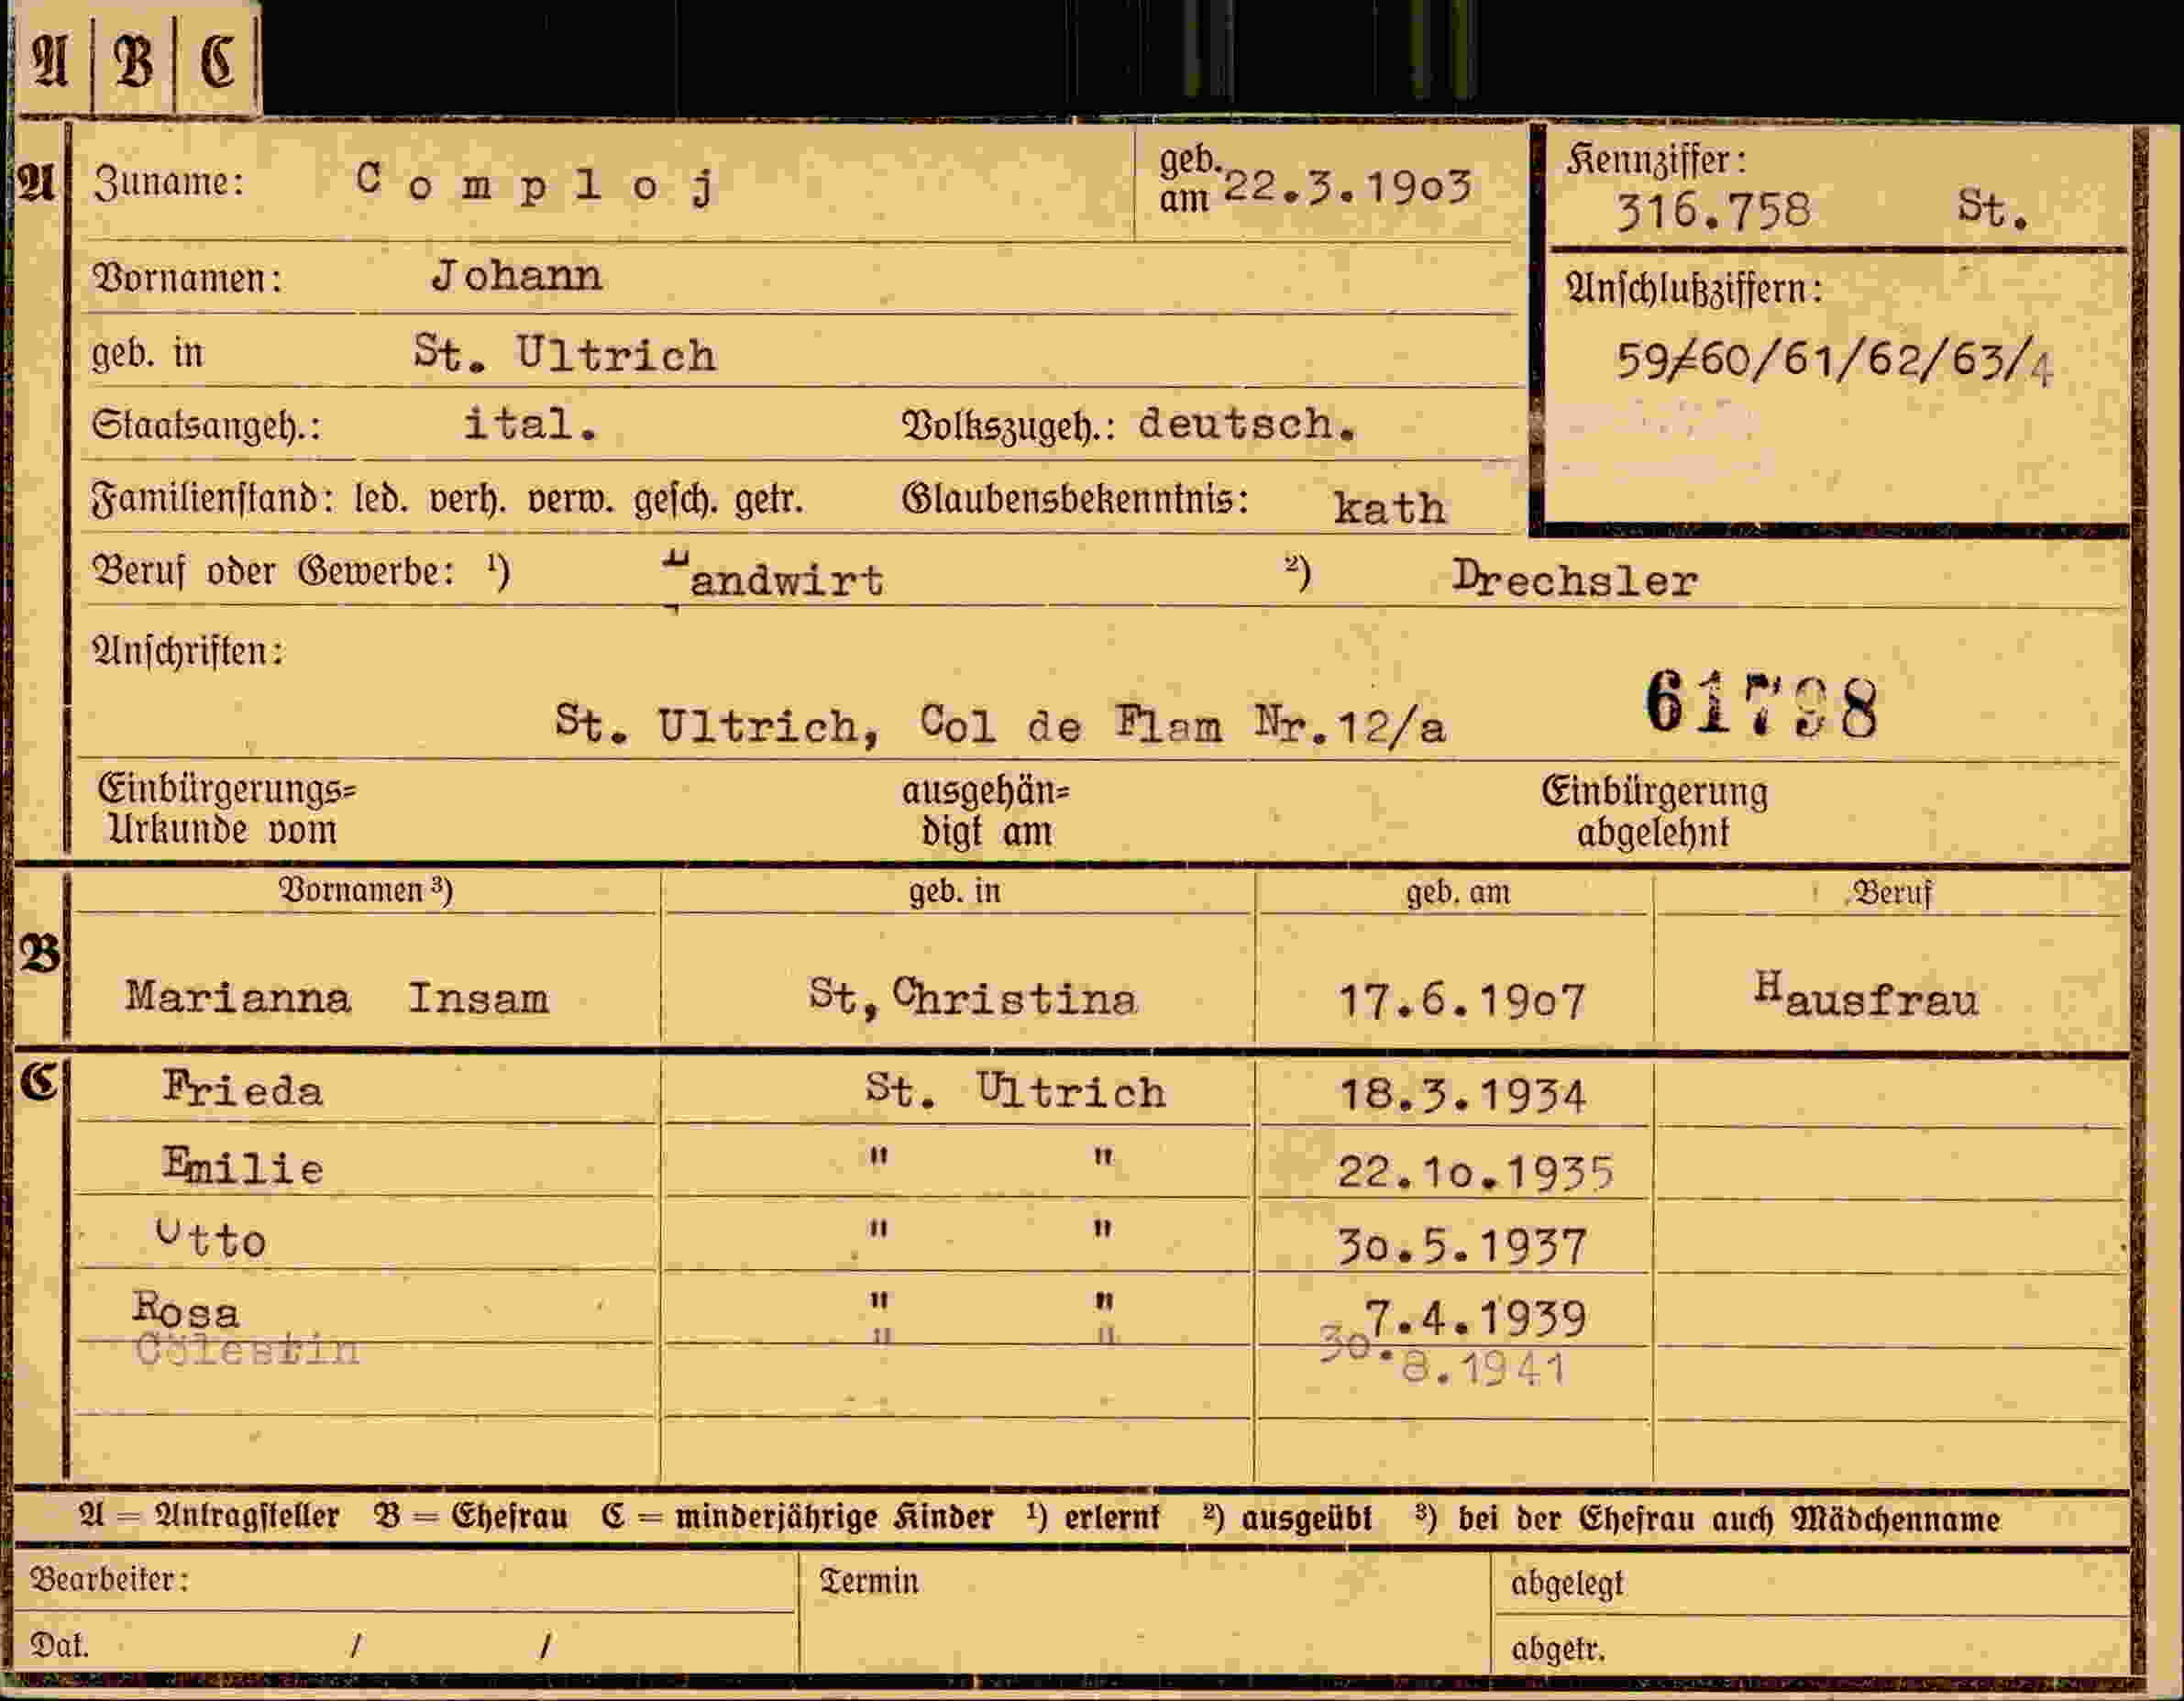 A B C
A Zuname: Comploj geb. am 22.3.1903 Kennziffer: 316.758 St.
Vornamen: Johann
Anschlußziffern:
geb. in St. Ultrich 59/60/61/62/63/4
Staatsangeh.: ital. Volkszugeh.: deutsch.
Familienstand: led. verh. verw. gesch. getr. Glaubensbekenntnis: kath
Beruf oder Gewerbe: ¹) Landwirt ²) Drechsler
Anschriften:
St. Ultrich, Col de Flam Nr.12/a 61798
Einbürgerungs= ausgehän= Einbürgerung
Urkunde vom digt am abgelehnt
Vornamen ³) geb. in geb. am Beruf
B
Marianna Insam St, Christina 17.6.1907 Hausfrau
C Frieda St. Ultrich 18.3.1934
Emilie " " 22.10.1935
Otto " " 30.5.1937
Rosa " " 7.4.1939
Cölestin " " 30.8.1941
A = Antragsteller B = Ehefrau C = minderjährige Kinder ¹) erlernt ²) ausgeübt ³) bei der Ehefrau auch Mädchenname
Bearbeiter: Termin abgelegt
Dat. / / abgetr.